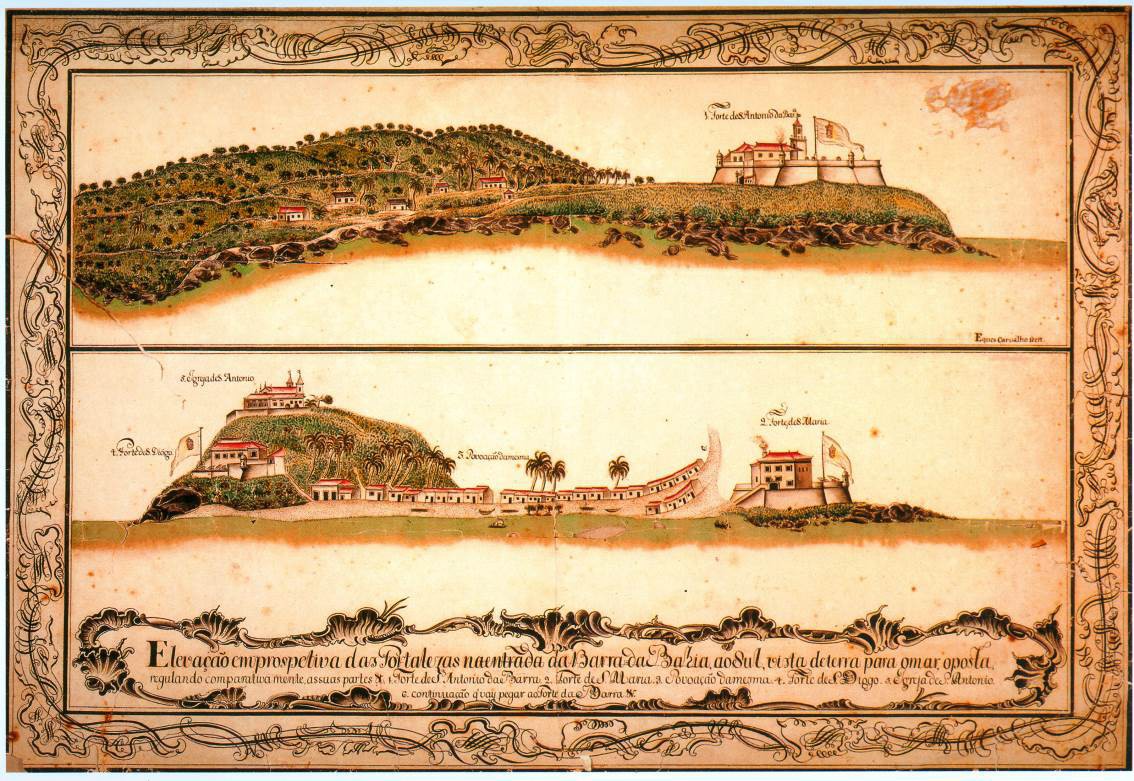 1. Forte de S. Antonio da Bar.ª
Eques Carvalho fecit.
5. Igreja de S. Antonio
4. Forte de S. Diogo
3. Povoação da mesma
2. Forte de S. Maria
6
Elevação em prospetiva das Fortalezas na entrada da Barra da Bahia, ao Sul, vista de terra para o mar oposta,
regulando comparativamente, as suas partes &. 1. Forte de S. Antonio da Barra. 2. Forte de S. Maria. 3. Povoação da mesma. 4. Forte de S. Diogo. 5. Egreja de S. Antonio.
6. continuação q̃ vai pegar ao Forte da Barra. &.